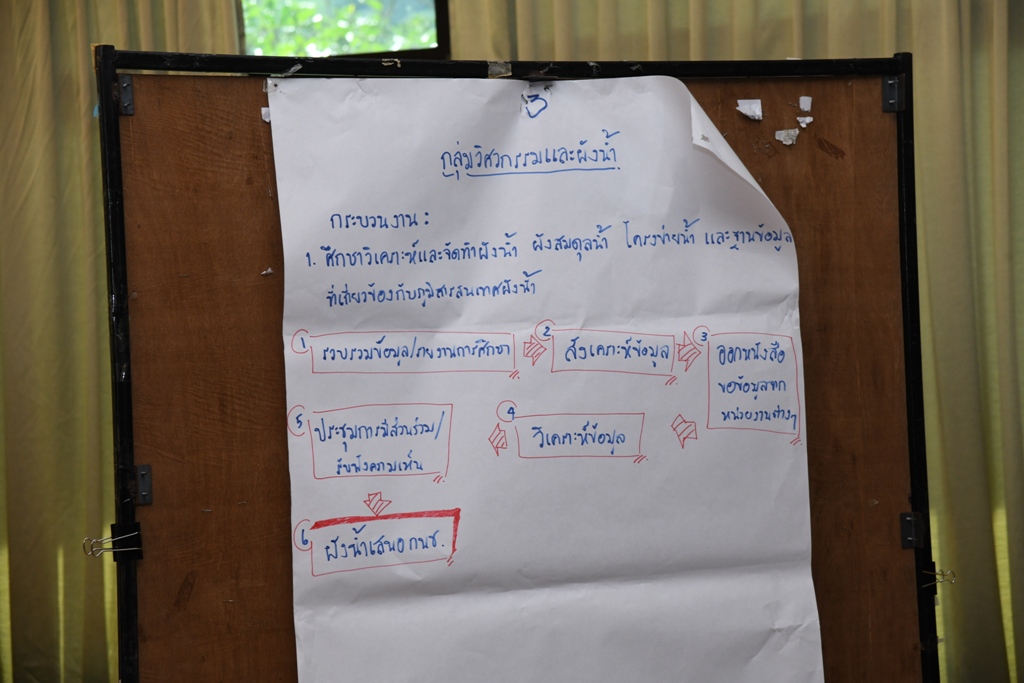 3
กลุ่มวิศวกรรมและผังน้ำ
กระบวนงาน :
1. ศึกษาวิเคราะห์และจัดทำผังน้ำ ผังสมดุลน้ำ โครงข่ายน้ำ และฐานข้อมูล
ที่เกี่ยวข้องกับภูมิสารสนเทศผังน้ำ
1 รวบรวมข้อมูล/รายงานการศึกษา
2 สังเคราะห์ข้อมูล
3 ออกหนังสือ
ขอข้อมูลจาก
หน่วยงานต่างๆ
4 วิเคราะห์ข้อมูล
5 ประชุมการมีส่วนร่วม/
รับฟังความเห็น
6 ผังน้ำเสนอ กนช.